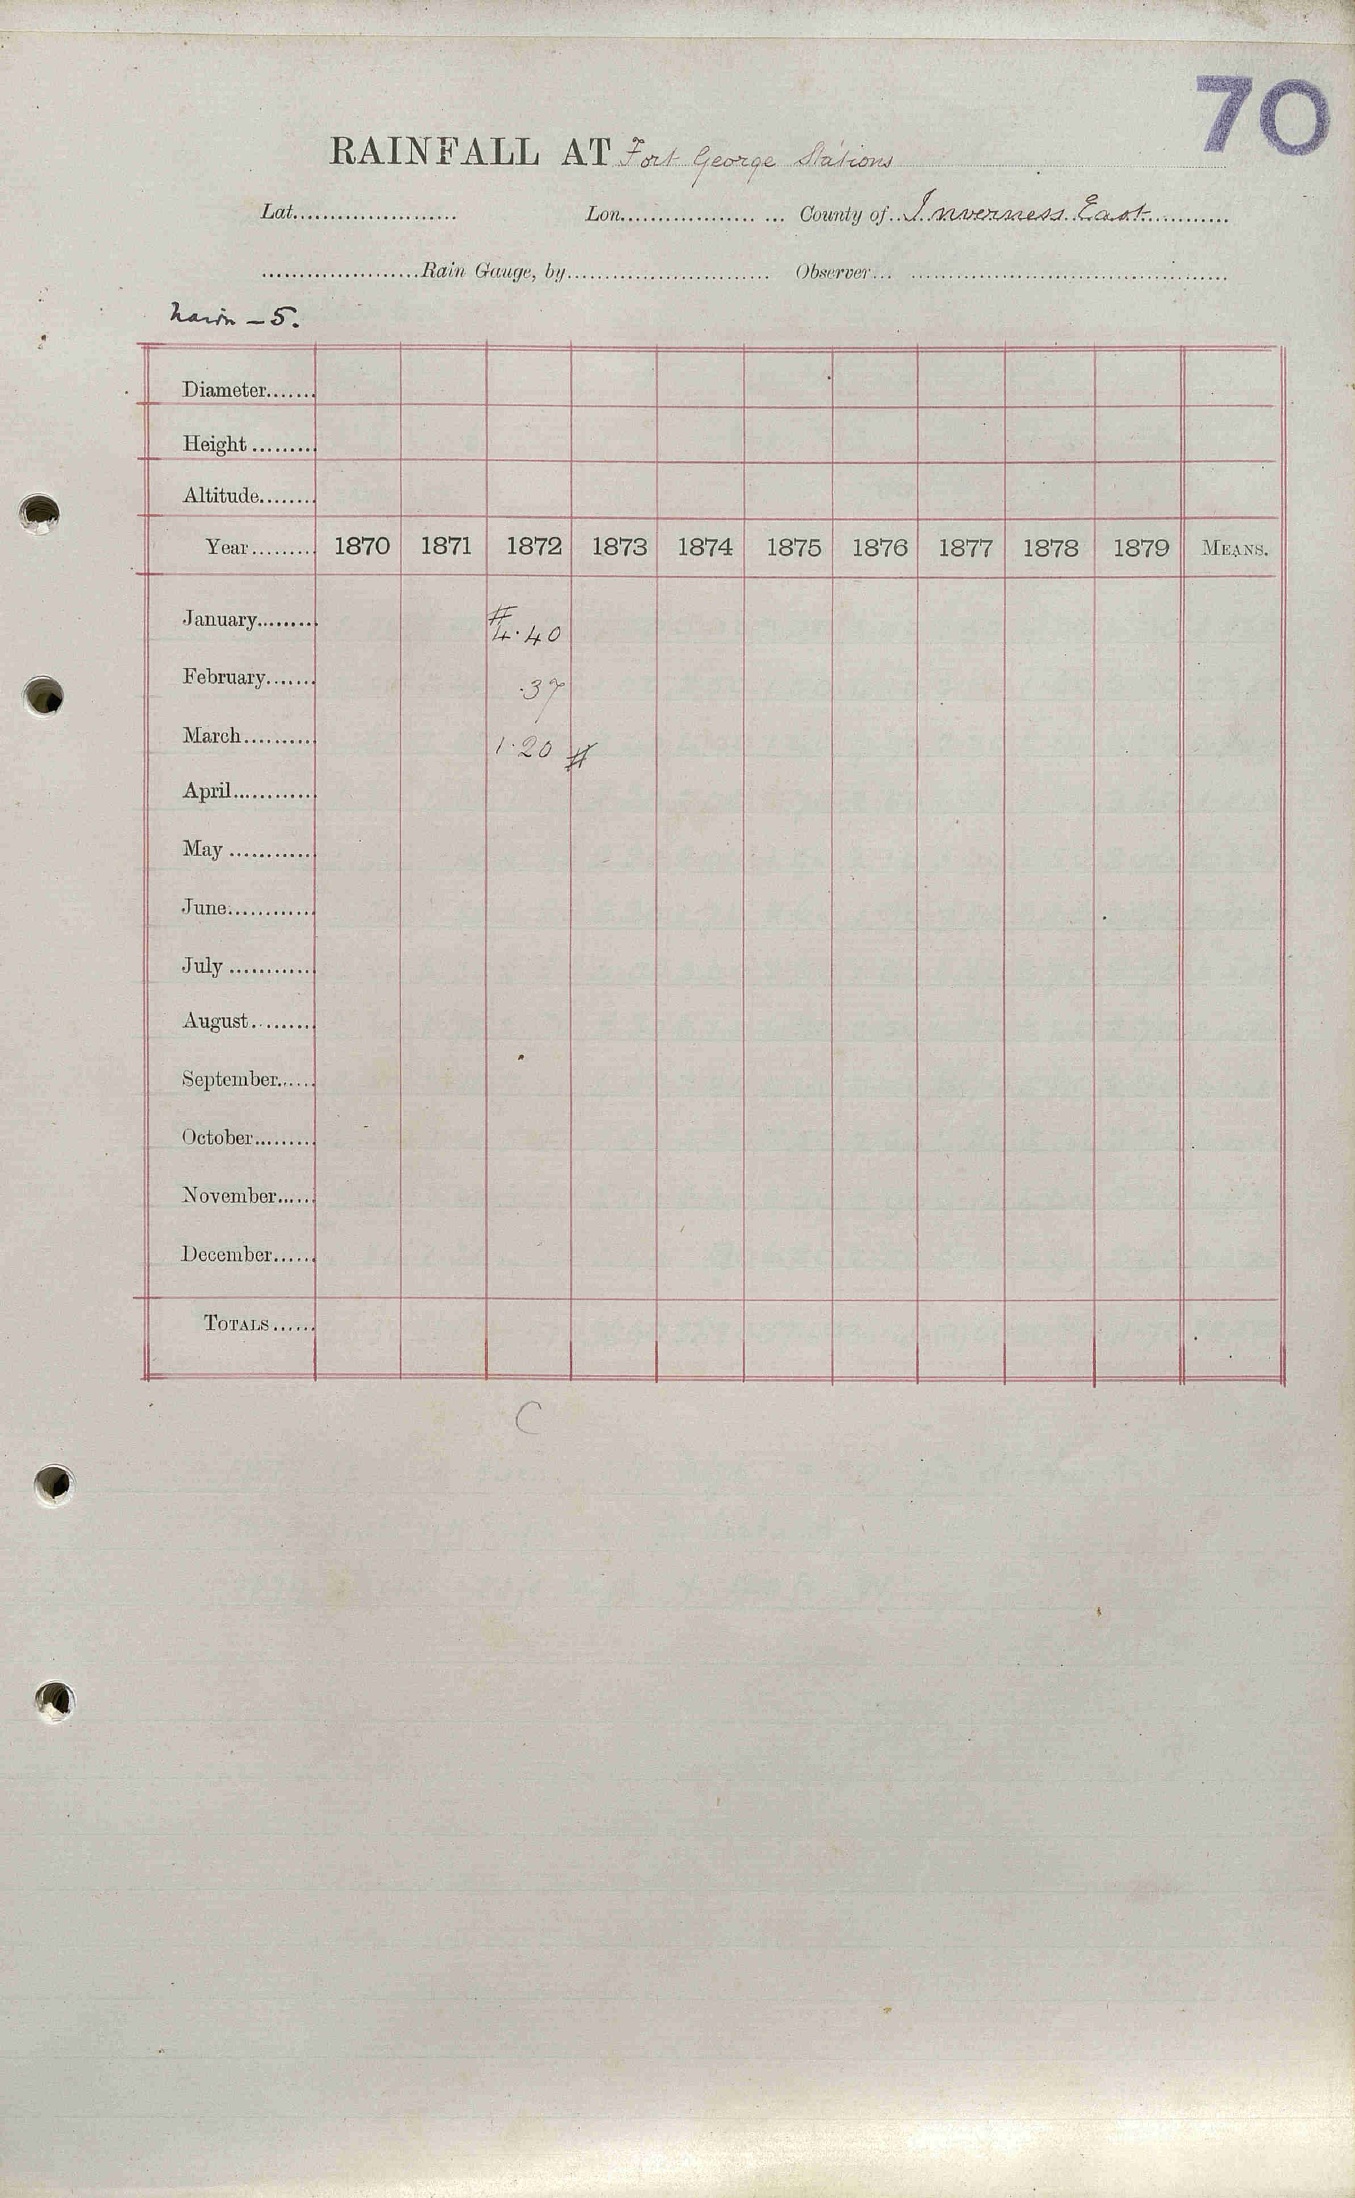 70
RAINFALL AT Fort George Stations
Lat...................... Lon.................. ... County of..Inverness East..........
.....................Rain Gauge, by........................... Observer... ..........................................
Nairn - 5.
Diameter.......
Height .........
Altitude........
Year......... 1870 1871 1872 1873 1874 1875 1876 1877 1878 1879 MEANS.
January........ # 4.40
February....... .37
March.......... 1.20 #
April............
May ............
June............
July ............
August.........
September......
October.........
November......
December......
TOTALS......
C